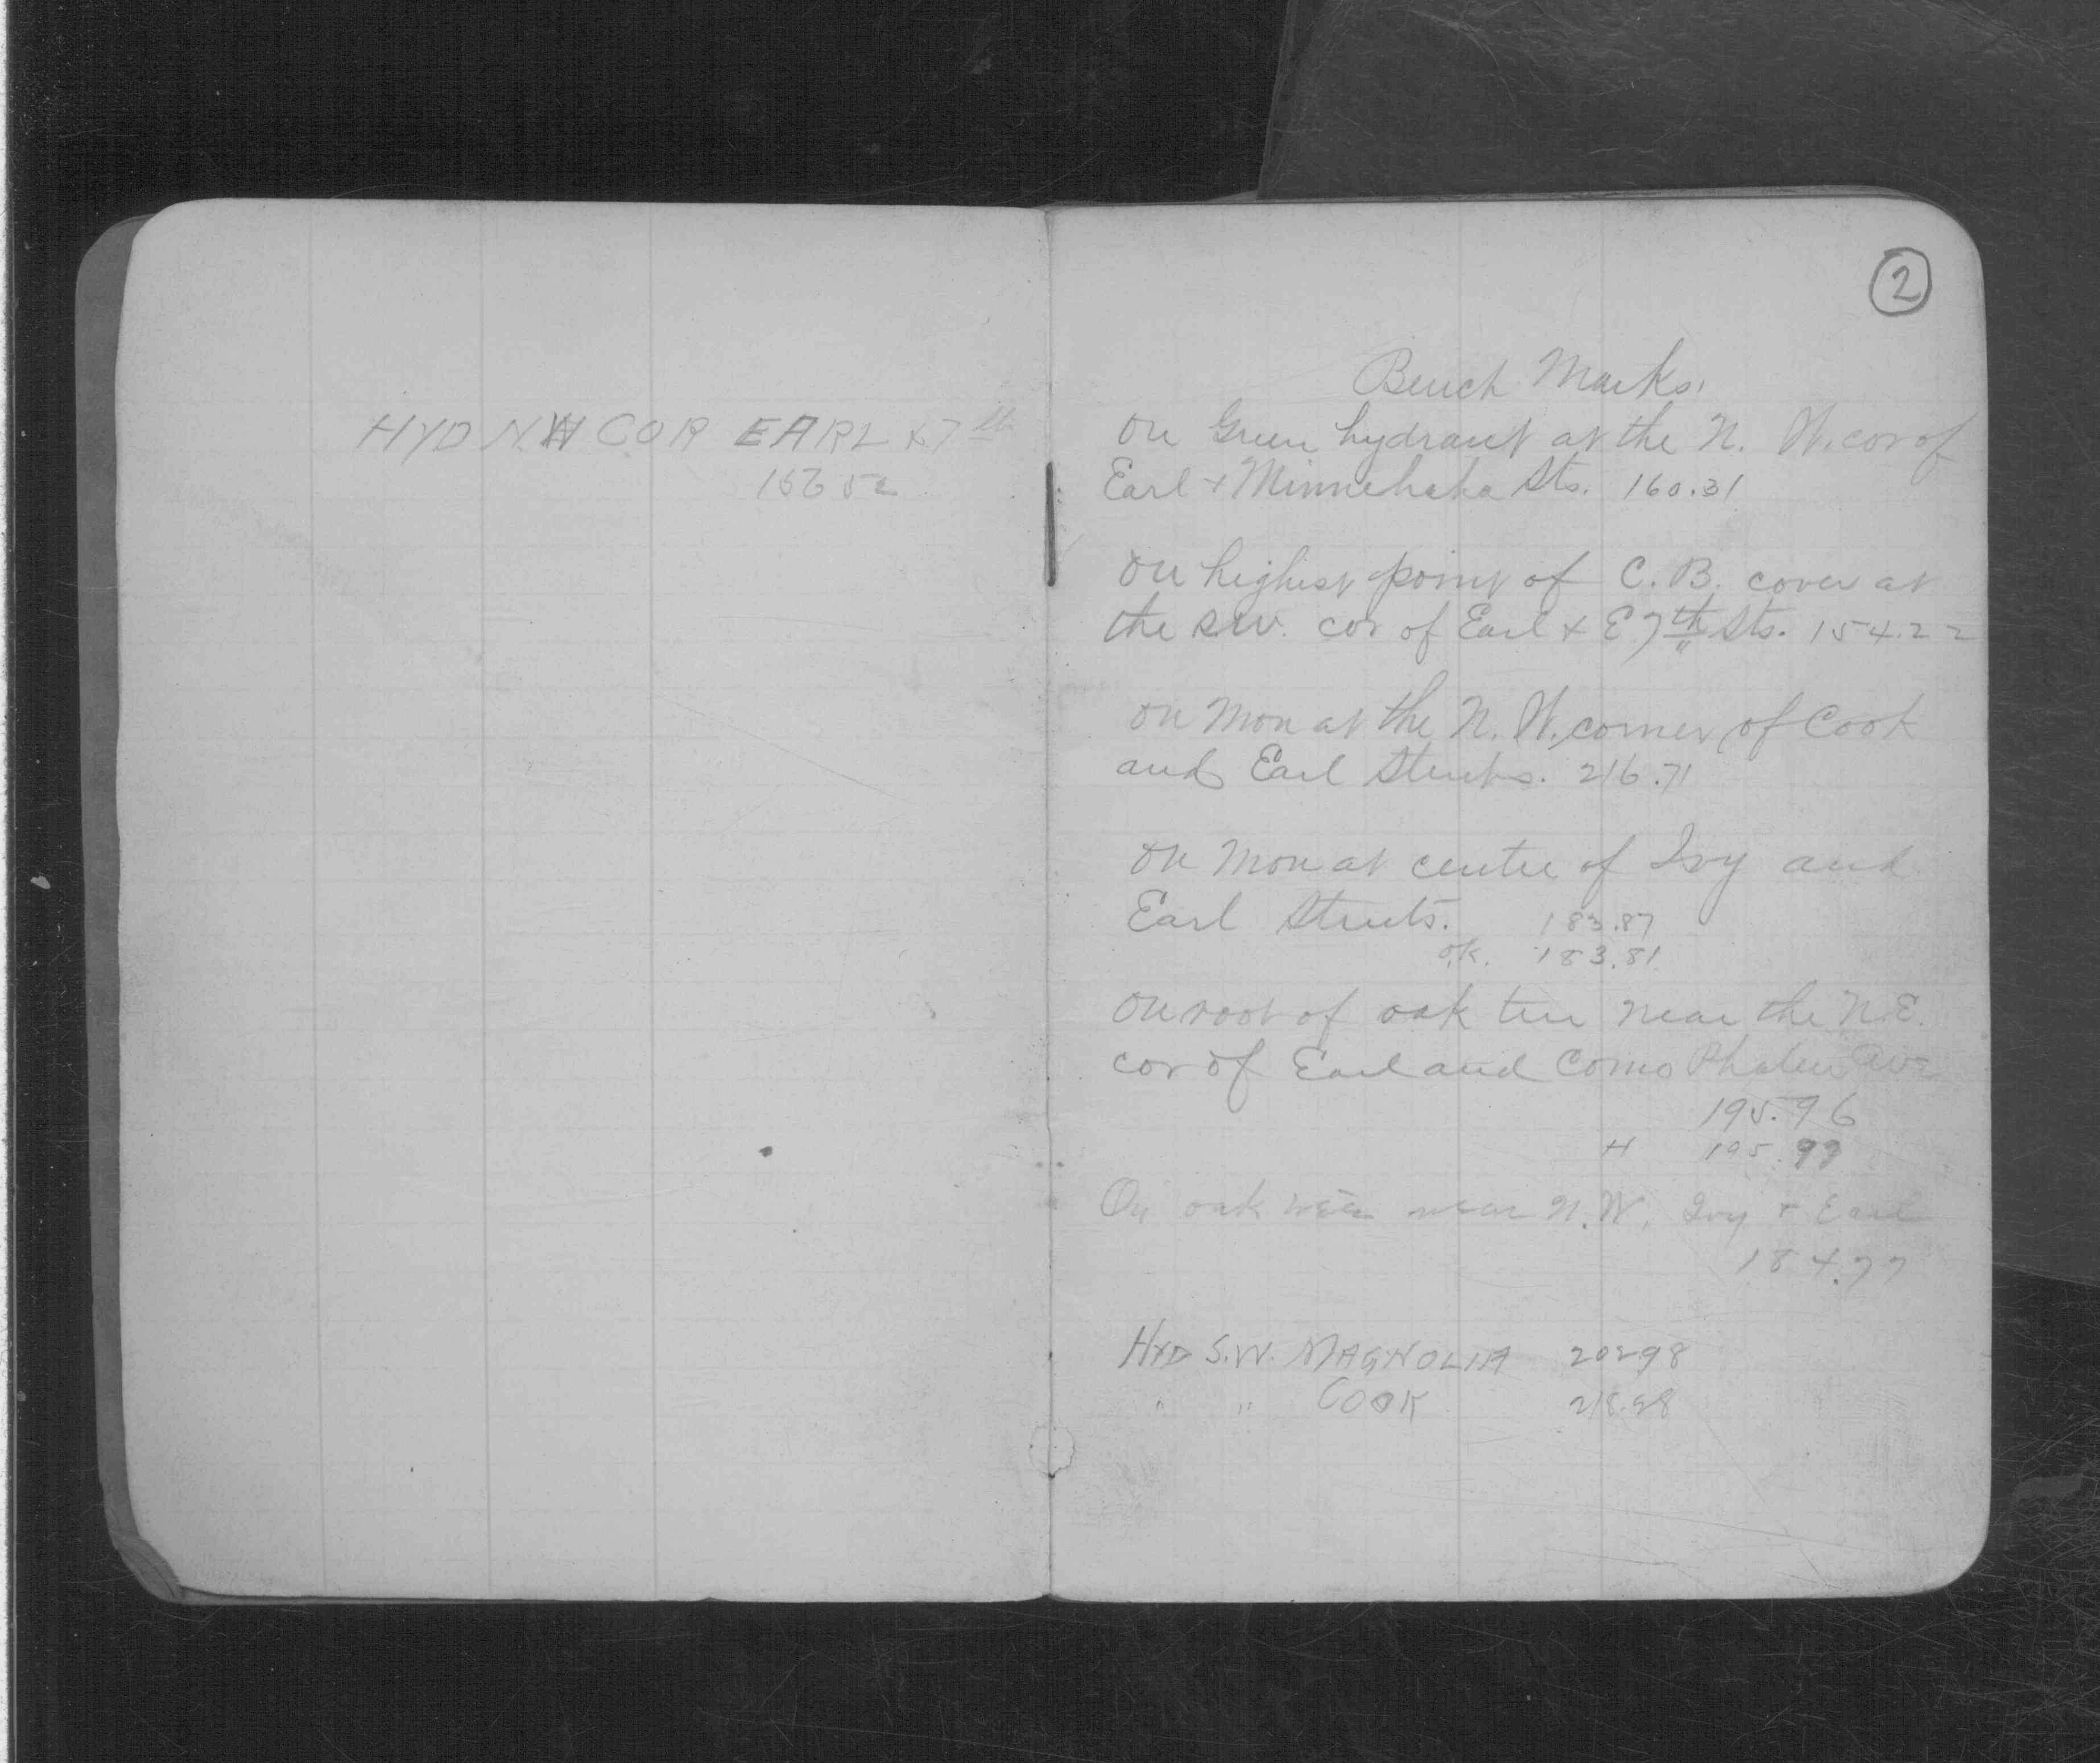 HYD N.W COR EARL & 7th
2
Bench Marks.
On Green hydrant at the N. W. cor of
Earl + Minnehaha Sts. 160.31
On highest point of C. B. cover at
the S.W. cor of Earl + E 7th Sts. 154.22
On Mon at the N. W. corner of Cook
and Earl Streets. 216.71
On Mon at centre of Ivy and
Earl Streets. 183.87
O.K. 183.81
On root of oak tree near the N.E.
cor of Earl and Como Phalen Ave
195.96
On oak tree near N.W. Ivy + Earl
184.77
HYD S.W. MAGNOLIA 20298
" " COOK